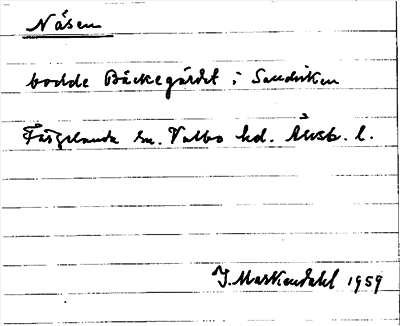 Nåsen
bodde Bäckegärdet i Sandviken
Färgelanda sn. Valbo hd. Älvsb. l.
J. Markendahl 1959